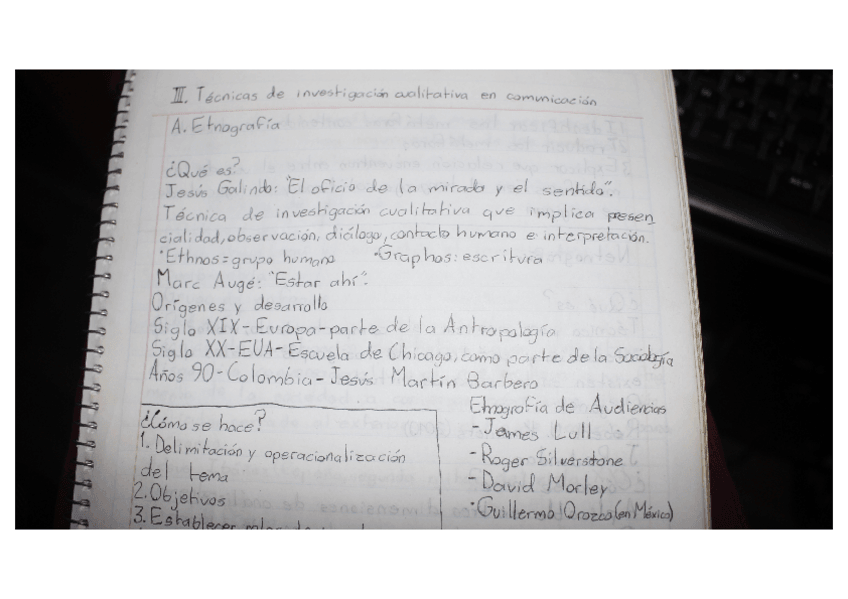 III. Técnicas de investigación cualitativa en comunicación
A. Etnografía
¿Qué es?
Jesús Galindo: "El oficio de la mirada y el sentido".
Técnica de investigación cualitativa que implica presen
cialidad, observación, diálogo, contacto humano e interpretación.
•Ethnos = grupo humano •Graphos: escritura
Marc Augé: "Estar ahí".
Orígenes y desarrollo
Siglo XIX - Europa - parte de la Antropología
Siglo XX - EUA - Escuela de Chicago, como parte de la Sociología
Años 90 - Colombia - Jesús Martín Barbero
¿Cómo se hace?
1. Delimitación y operacionalización
del tema
2. Objetivos
3. Establecer
Etnografía de Audiencias
- James Lull
- Roger Silverstone
- David Morley
• Guillermo Orozco (en México)